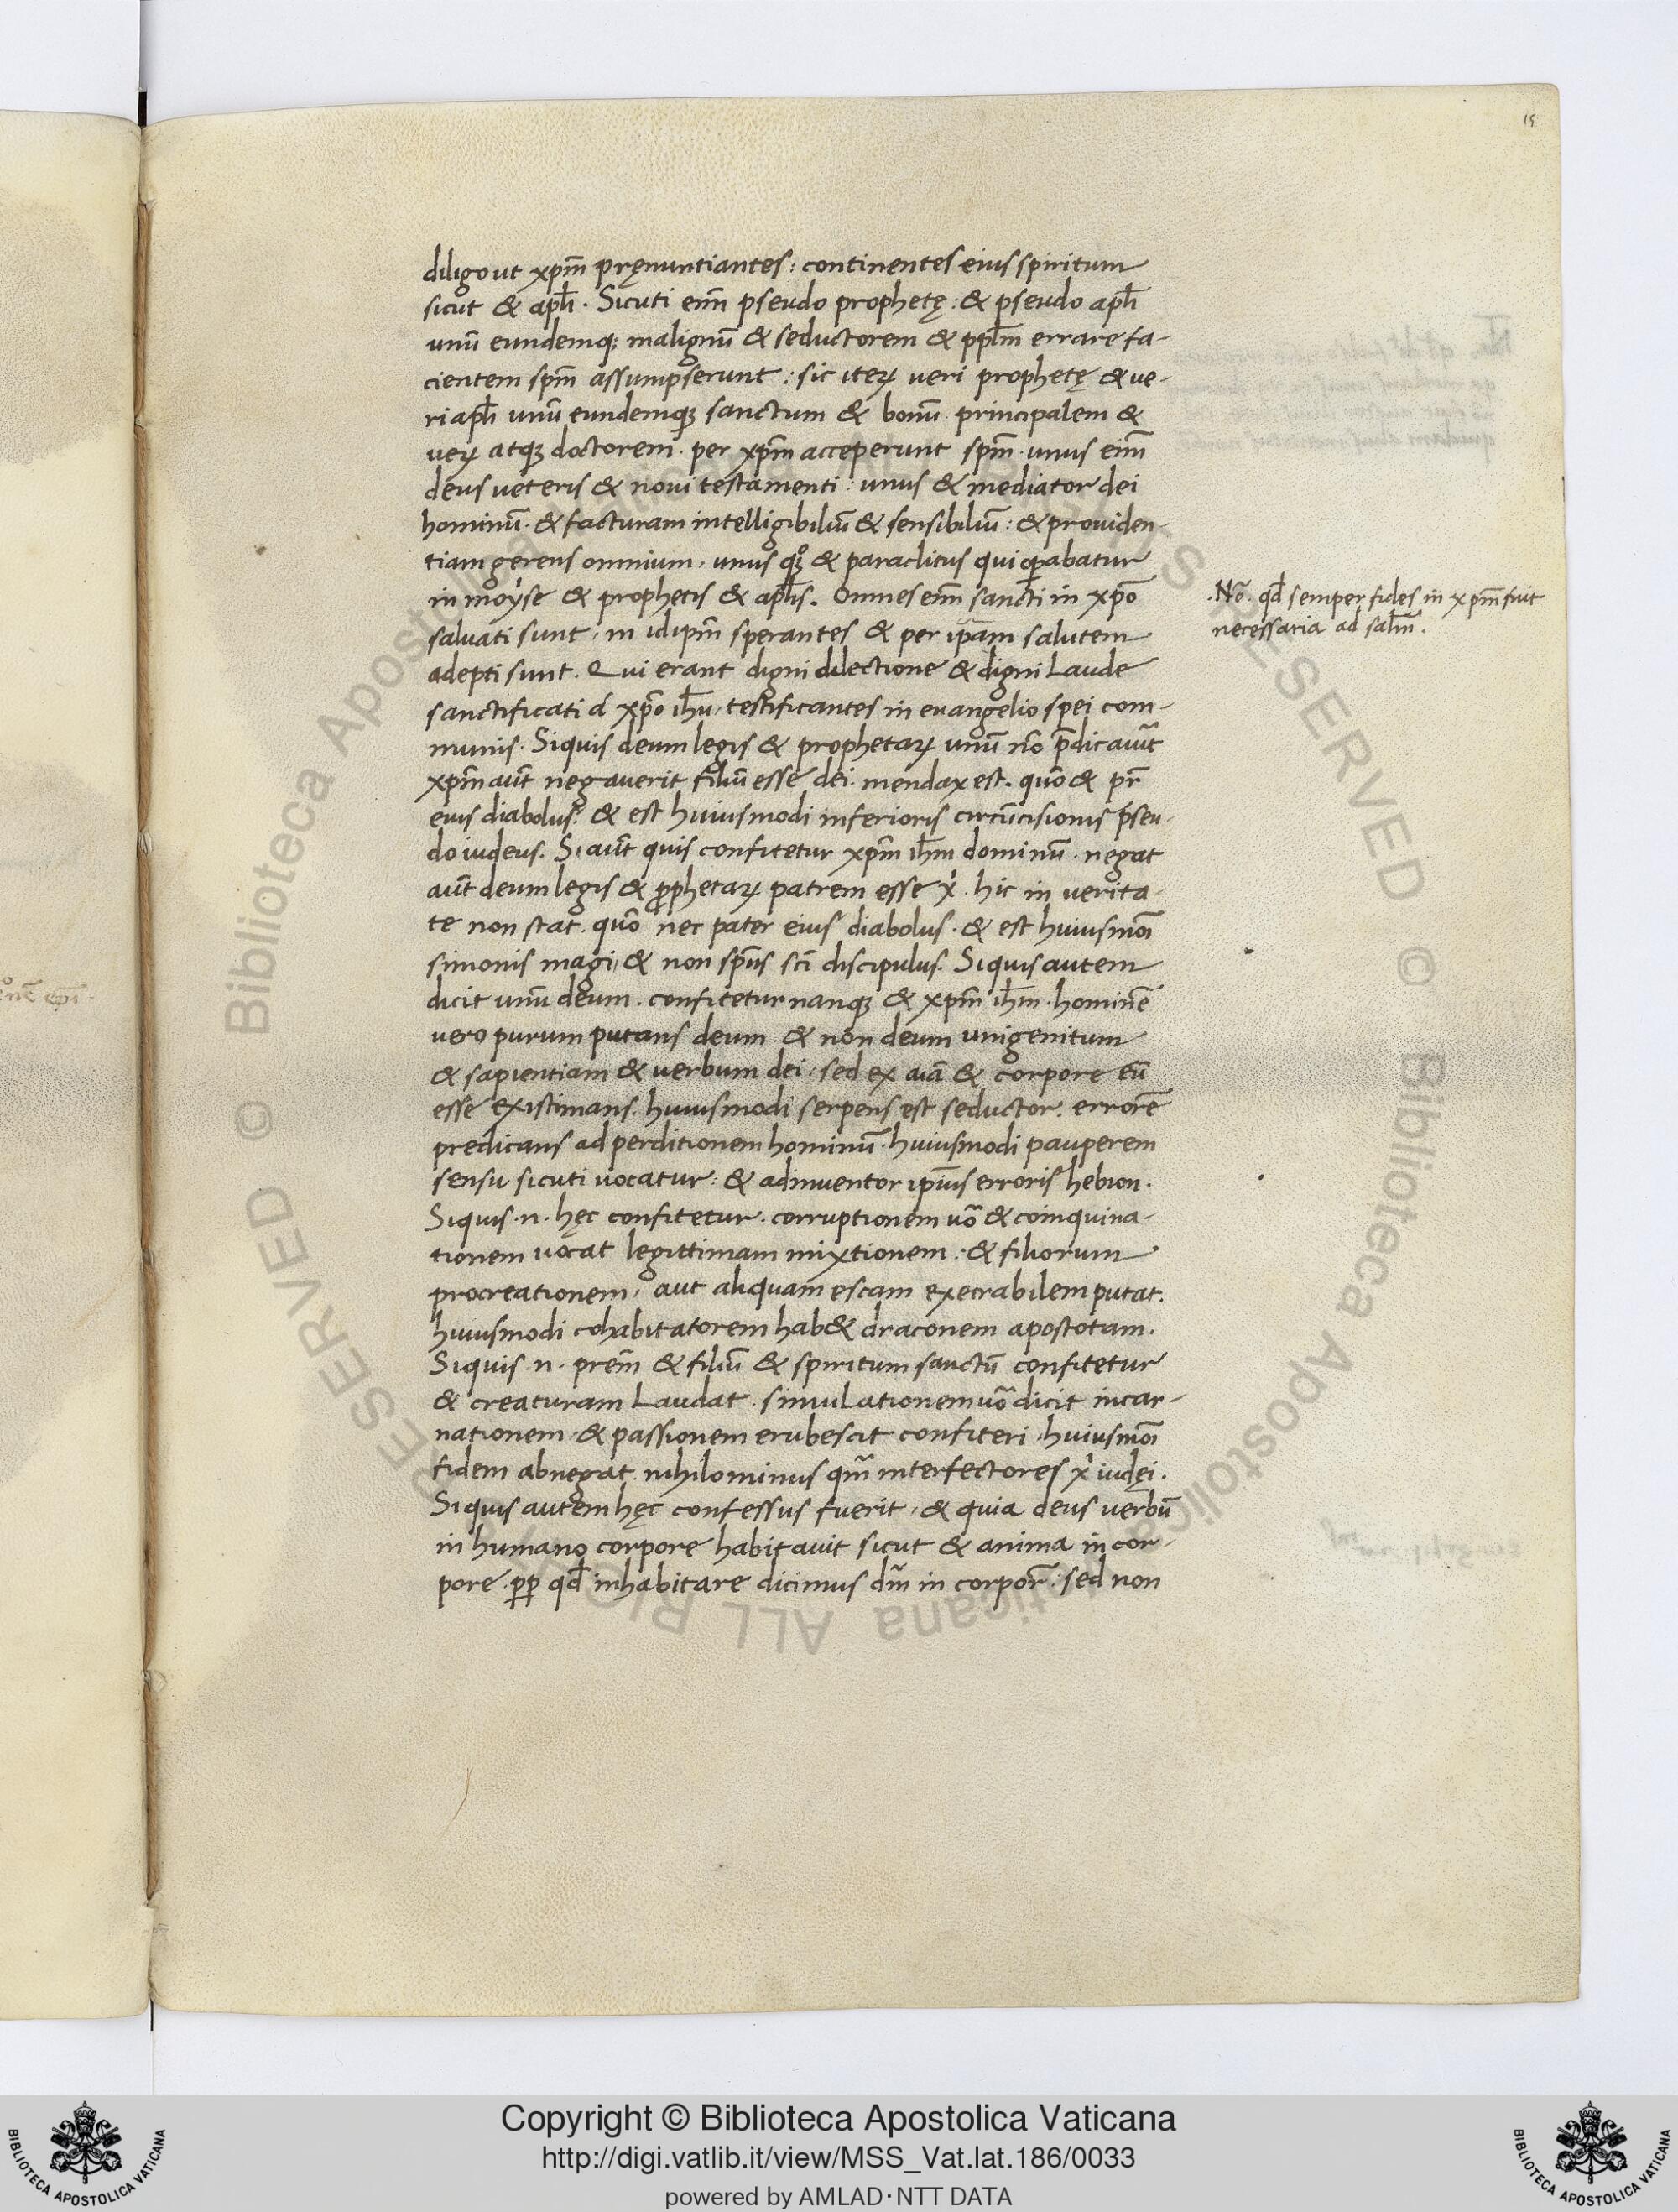 15
diligo ut xp̄m pręnuntiantes: continentes eius spiritum
sicut & apl̄i. Sicuti em̄ pseudo prophetę: & pseudo apl̄i
unū eundemq; malignū & seductorem & ppl̄m errare fa-
cientem sp̄m assumpserunt: sic iteꝝ ueri prophetę & ve-
ri apl̄i unū eundemqꝫ sanctum & bonū principalem &
ueꝝ atqꝫ doctorem. per xp̄m acceperunt sp̄m. unus eim̄
deus veteris & novi testamenti: unus & mediator dei
hominū. & facturam intelligibiliū & sensibiliū: & prouiden-
tiam gerens omnium, unus qꝫ & paraclitus qui oꝑabatur
in moyse & prophetis & apl̄is. Omnes em̄ sancti in xp̄o
saluati sunt, in idip̄m sperantes & per ip̄am salutem
adepti sunt. Qui erant digni dilectione & digni laude
sanctificati d xp̄o ih̄u, testificantes in euangelio spei com-
munis. Siquis deum legis & prophetaꝝ unū nō p̄dicauit̄
xp̄m aut̄ negauerit filiū esse dei. mendax est. quō & pr̄
eius diabolus: & est huiusmodi inferioris circūcisionis pseu-
do iudeus. Si aut̄ quis confitetur xp̄m ih̄m dominū. negat
aut̄ deum legis & ꝓphetaꝝ patrem esse x̓. hic in verita-
te non stat. quō nec pater eius diabolus. & est huiusmōi
simonis magi, & non sp̄us sc̄i discipulus. Siquis autem
dicit unū deum. confitetur nanqꝫ & xp̄m ih̄m. hominē
vero purum putans deum & non deum unigenitum
& sapientiam & verbum dei: sed ex aīa & corpore eū
esse existimans. huiusmodi serpens est seductor. errorē
predicans ad perditionem hominū. huiusmodi pauperem
sensu sicuti vocatur: & adinventor ip̄ius erroris hebion.
Siquis .n. hęc confitetur. corruptionem uō & coinquina-
tionem vocat legittimam mixtionem: & filiorum
procreationem, aut aliquam escam execrabilem putat.
huiusmodi cohabitatorem hab& draconem apostotam.
Siquis .n. prēm & filiū & spiritum sanctū confitetur
& creaturam laudat. simulationem uō dicit incar-
nationem & passionem erubescit confiteri. huiusmōi
fidem abnegat. nihilominus qm̄ interfectores x̓ iudęi.
Siquis autem hęc confessus fuerit, & quia deus verbū
in humano corpore habitauit sicut & anima in cor-
pore. ꝓp qd̄ inhabitare dicimus dm̄ in corpor̄: sed non
.Nō. qd̄ semper fides in xp̄m fuit
necessaria ad sal̄m.
Copyright © Biblioteca Apostolica Vaticana
http://digi.vatlib.it/view/MSS_Vat.lat.186/0033
powered by AMLAD·NTT DATA
BIBLIOTECA APOSTOLICA VATICANA
BIBLIOTECA APOSTOLICA VATICANA